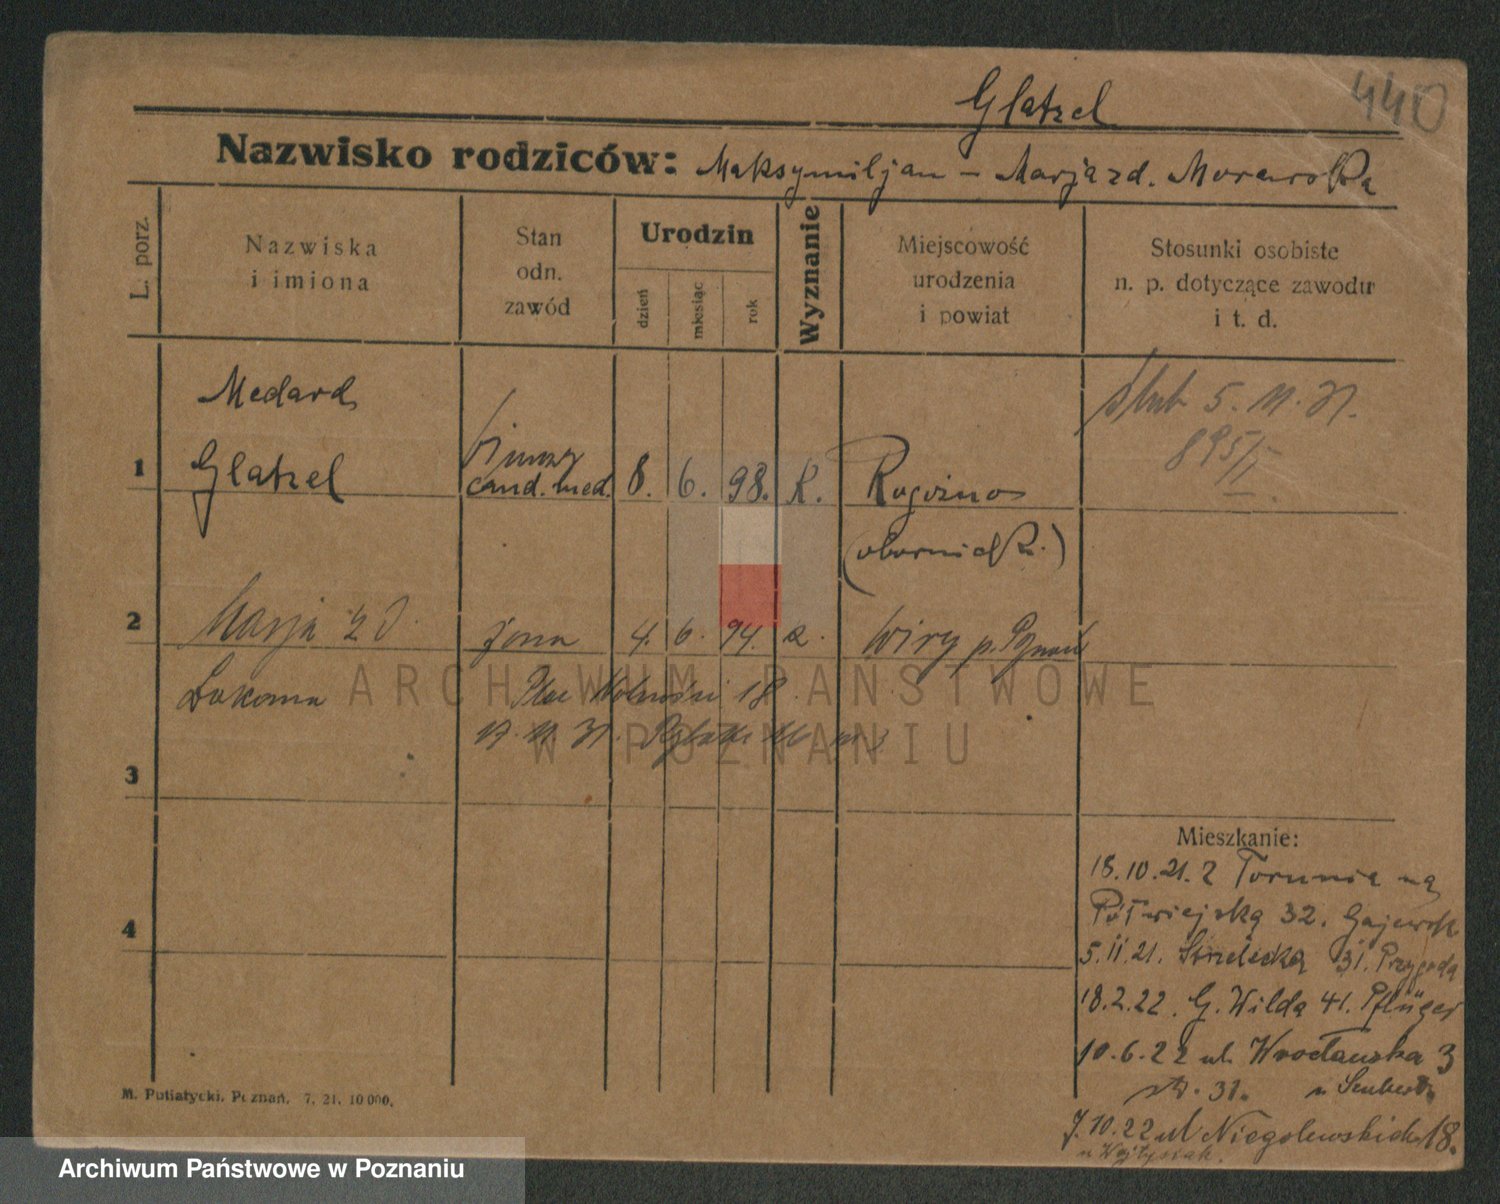 440
Glatzel
Nazwisko rodziców: Maksymiljan – Marja zd. Morawska
L. porz.
Nazwiska
i imiona
Stan
odn.
zawód
Urodzin
dzień
miesiąc
rok
Wyznanie
Miejscowość
urodzenia
i powiat
Stosunki osobiste
n. p. dotyczące zawodu
i t. d.
Medard
1 Glatzel
cand. med. 8. 6. 98. R. Rogoźno
ślub 5. 11. 31.
895/II
2 Marja zd. żona 4. 6. 94. R. Wiry p. Poznań
Plac Wolności 18
17. 11. 31.
3
4
Mieszkanie:
18.10.21. z Torunia na
Półwiejską 32. Gajewsk
5.11.21. Strzelecka 31. Przygoda
18.2.22. G. Wilda 41. Pflüger
10.6.22 ul. Wrocławska 3
31. u
7.10.22 ul Niegolewskich 18.
u Wojtysiak.
M. Putiatycki, Poznań, 7. 21. 10 000.
ARCHIWUM PAŃSTWOWE
W POZNANIU
Archiwum Państwowe w Poznaniu